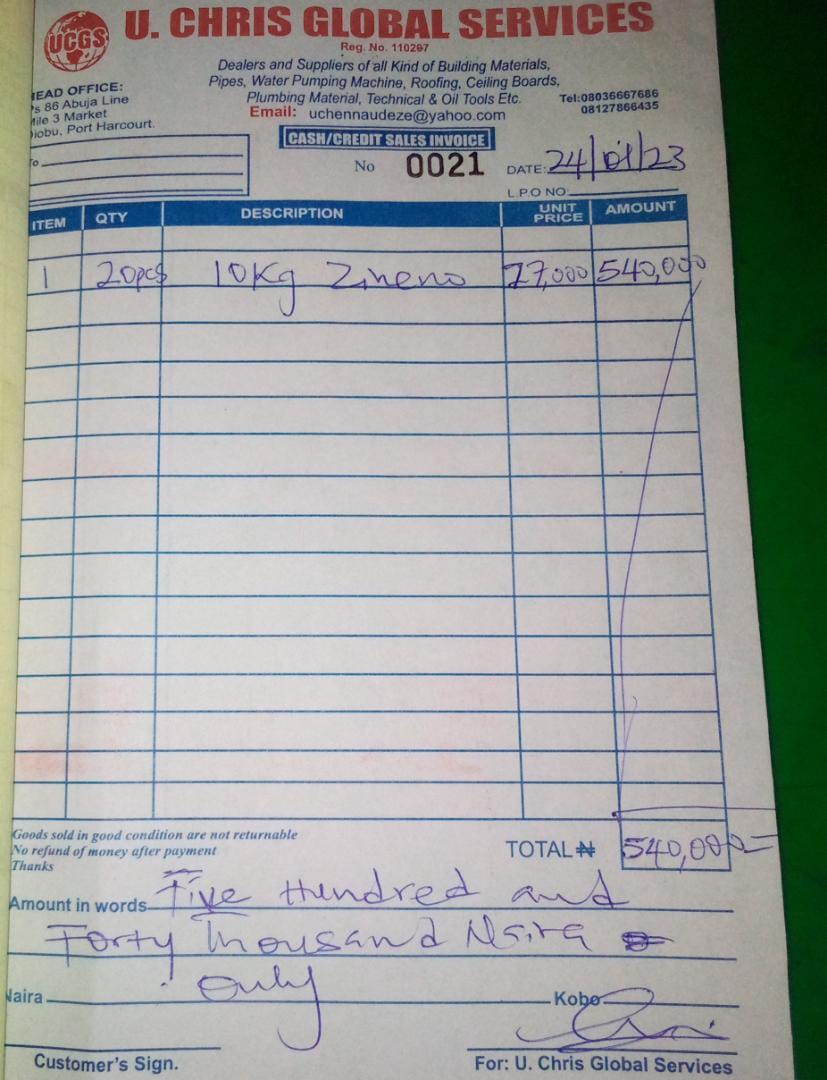 UCGS
U. CHRIS GLOBAL SERVICES
Reg. No. 110297
Dealers and Suppliers of all Kind of Building Materials,
Pipes, Water Pumping Machine, Roofing, Ceiling Boards,
Plumbing Material, Technical & Oil Tools Etc.
Email: uchennaudeze@yahoo.com
EAD OFFICE:
's 86 Abuja Line
Mile 3 Market
iobu, Port Harcourt.
Tel:08036667686
08127866435
CASH/CREDIT SALES INVOICE
No 0021
DATE: 24/01/23
L.P.O NO
o
ITEM QTY DESCRIPTION UNIT PRICE AMOUNT
1 20pcs 10Kg 27,000 540,000
Goods sold in good condition are not returnable
No refund of money after payment
Thanks
TOTAL ₦ 540,000=
Amount in words Five Hundred and
Forty Thousand Naira
only
Naira Kobo
Customer's Sign. For: U. Chris Global Services